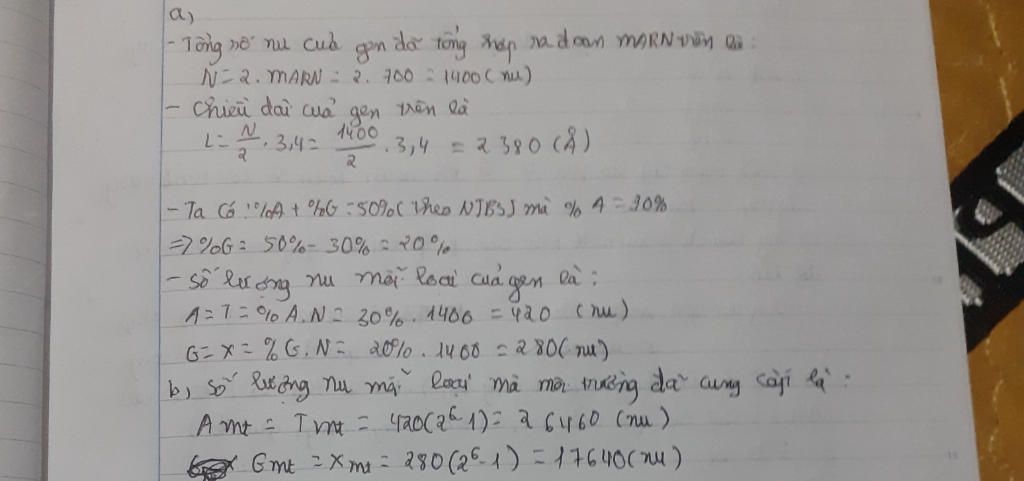 a,
- Tổng số nu của gen đã tổng hợp ra đoạn mARN trên là:
N = 2. mARN = 2. 700 = 1400 (nu)
- Chiều dài của gen trên là
L = N/2 . 3,4 = 1400/2 . 3,4 = 2380 (Å)
- Ta có: %A + %G = 50% (theo NTBS) mà % A = 30%
=> %G = 50% - 30% = 20%
- Số lượng nu mỗi loại của gen là:
A = T = % A. N = 30% . 1400 = 420 (nu)
G = X = % G. N = 20% . 1400 = 280 (nu)
b, Số lượng nu mỗi loại mà môi trường đã cung cấp là:
A mt = T mt = 420(2⁶-1) = 26460 (nu)
G mt = X mt = 280(2⁶-1) = 17640 (nu)